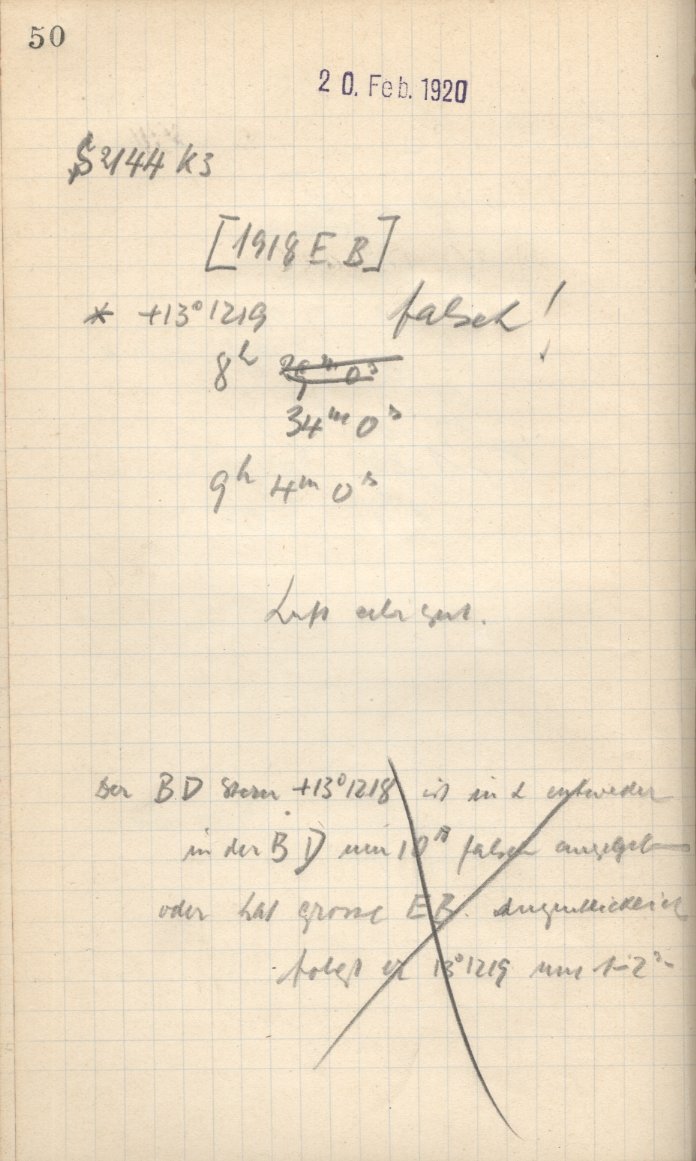 50
20. Feb. 1920
S 2144 K3
[1918 E B]
* +13° 1219 falsch!
8h 29m 0s
34m 0s
9h 4m 0s
Luft sehr gut.
Der BD Stern +13°1218 ist in α entweder
in der BD um 10s falsch angegeben
oder hat grosse EB. Augenblicklich
folgt er 13°1219 um 1-2s